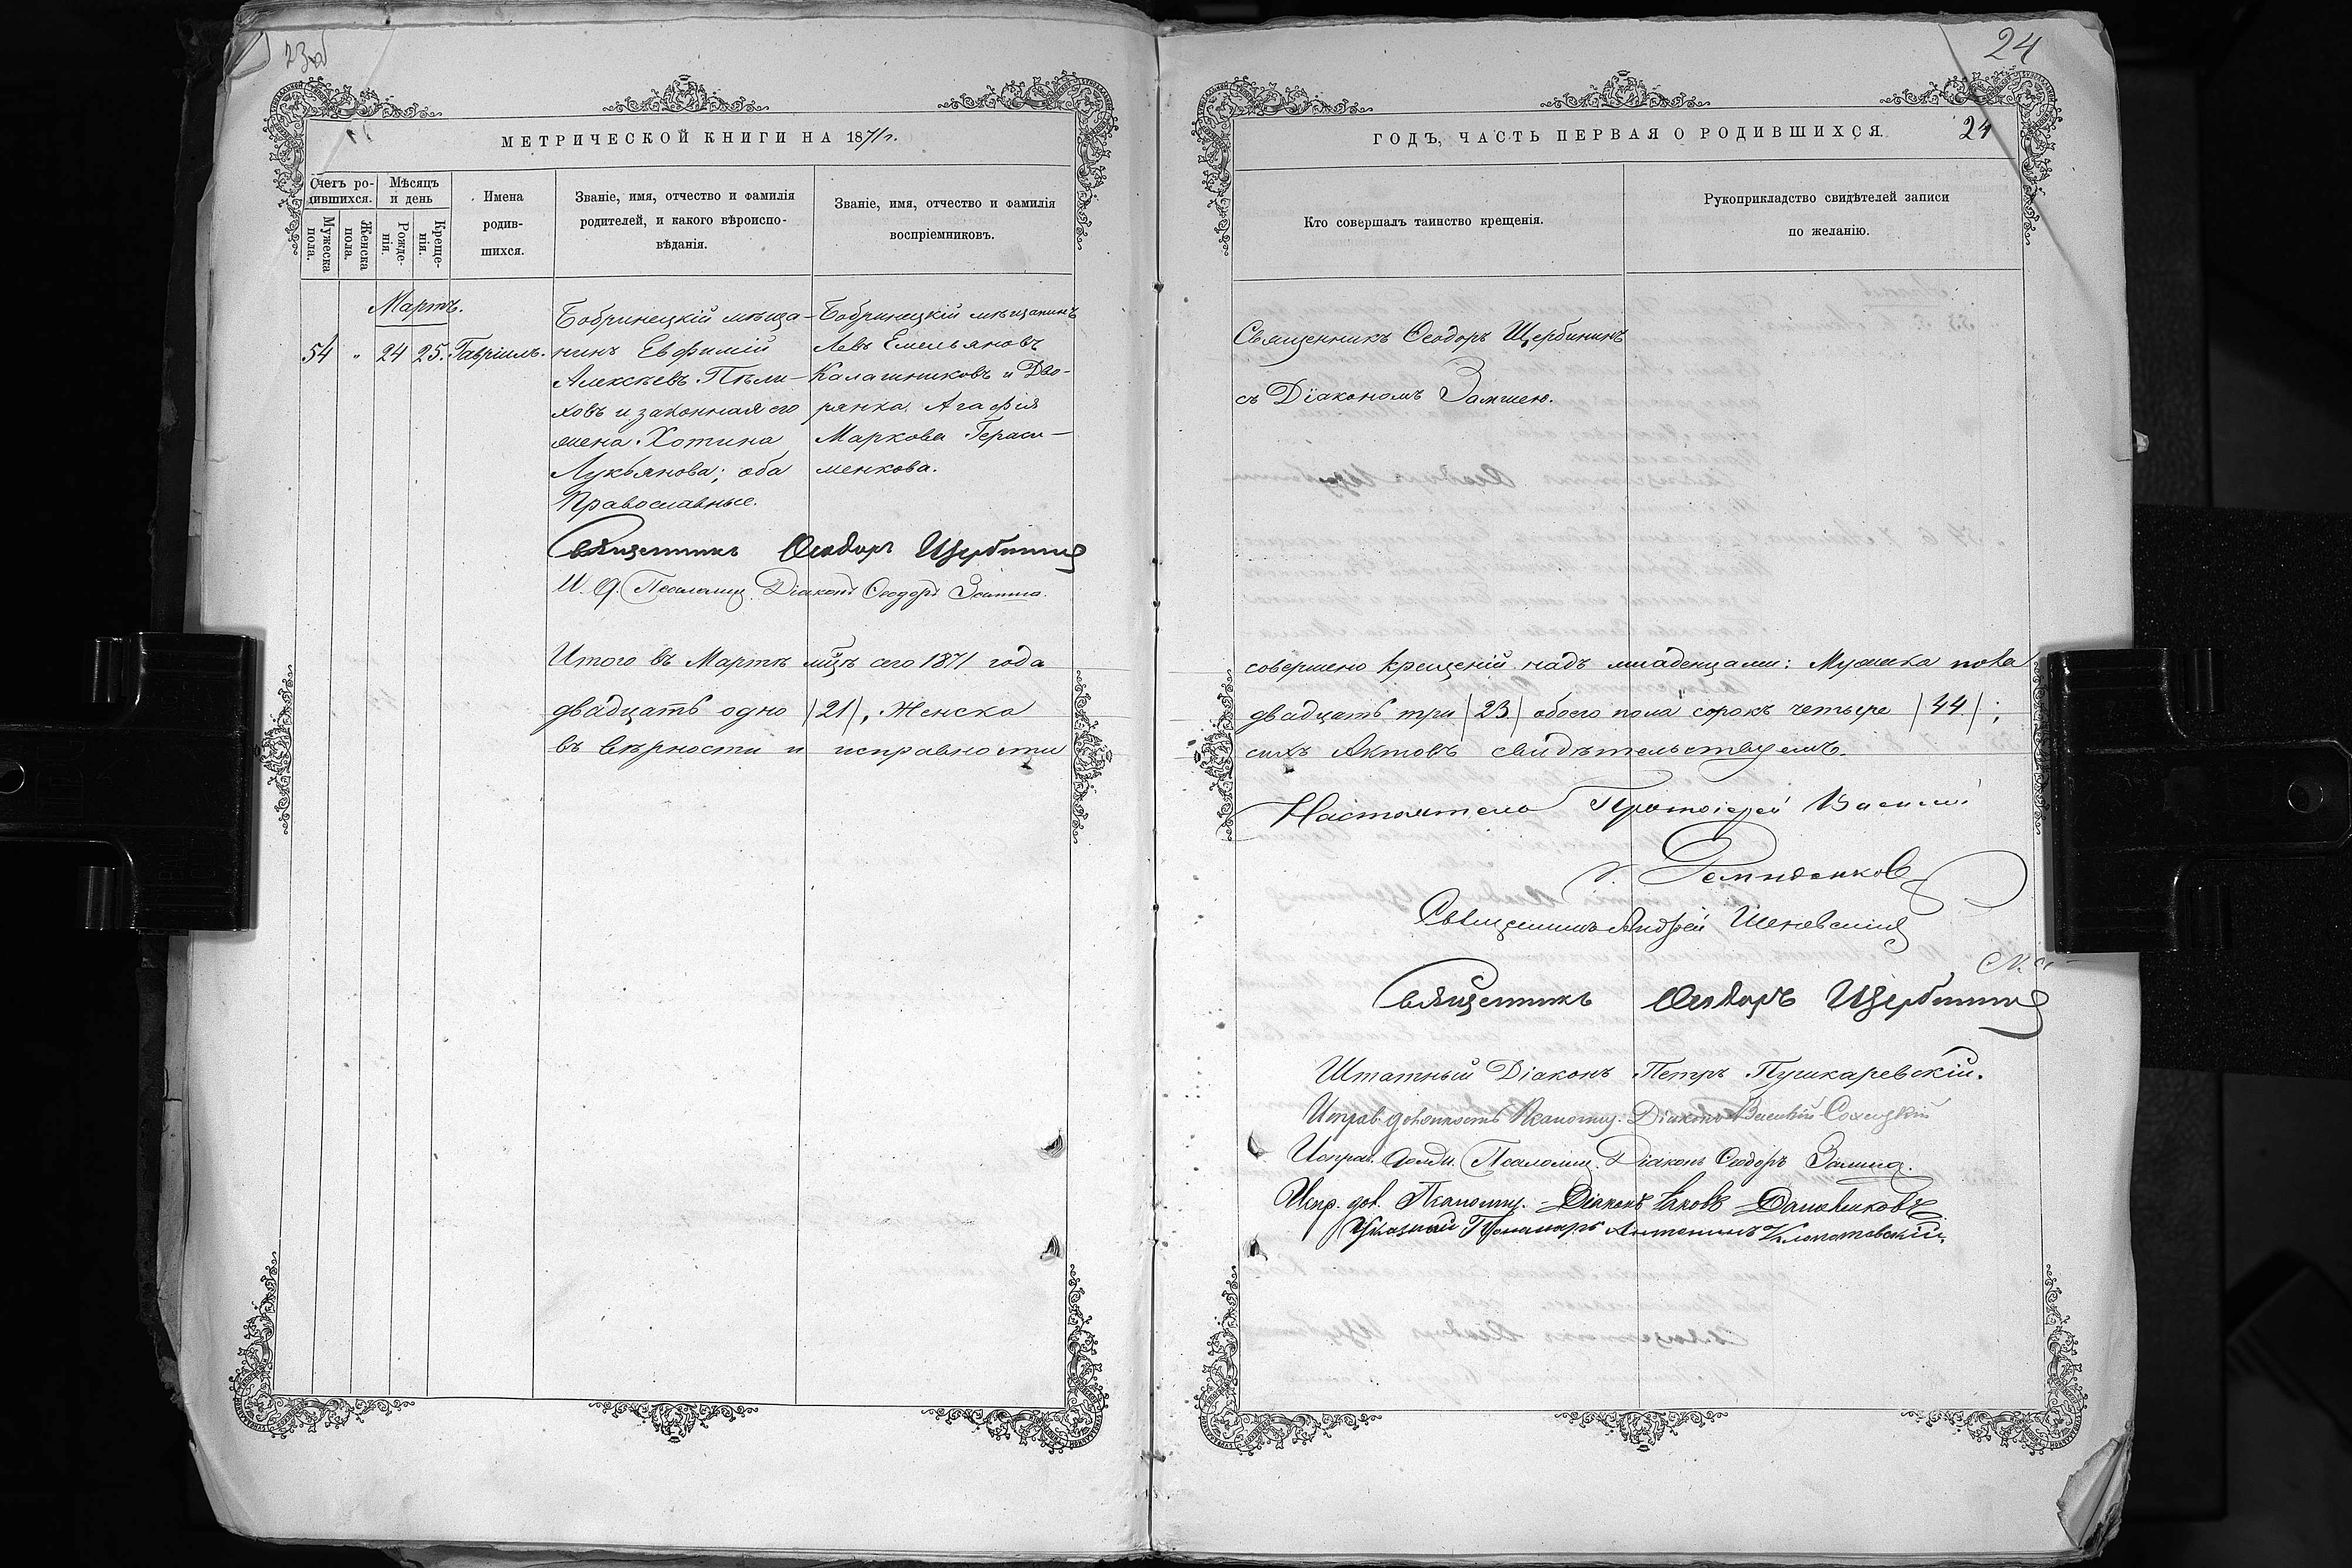 23об
МЕТРИЧЕСКОЙ КНИГИ НА 1871 г.
Счетъ ро-
дившихся.
Мужеска
пола.
Женска
пола.
Мѣсяцъ
и день
Рожде-
нія.
Креще-
нія.
Имена
родив-
шихся.
Званіе, имя, отчество и фамилія
родителей, и какого вѣроиспо-
вѣданія.
Званіе, имя, отчество и фамилія
воспріемниковъ.
Мартъ.
54 " 24 25. Гавріилъ.
Бобринецкій мѣща-
нинъ Евфимій
Алексѣевъ Пѣли-
ховъ и законная его
жена Хотина
Лукьянова; оба
Православные.
Бобринецкій мѣщанинъ
Левъ Емельяновъ
Калашниковъ и Дво-
рянка Агафія
Маркова Гераси-
менкова.
Священникъ Ѳеодоръ Щербининъ
И. д. Псаломщ. Діаконъ Ѳеодоръ
Итого въ Мартѣ мцѣ сего 1871 года
двадцать одно (21), Женска
въ вѣрности и исправности
24
ГОДЪ, ЧАСТЬ ПЕРВАЯ О РОДИВШИХСЯ.
24
Кто совершалъ таинство крещенія.
Рукоприкладство свидѣтелей записи
по желанію.
Священникъ Ѳеодоръ Щербининъ
съ Діакономъ
совершено крещеній надъ младенцами: Мужска пола
двадцать три (23) обоего пола сорокъ четыре (44);
сихъ Актовъ свидѣтельствуемъ.
Настоятель Протоіерей Василій
Священникъ Андрей
Священникъ Ѳеодоръ Щербининъ
Штатный Діаконъ Петръ Пушкаревскій.
Исправ. должность Псаломщ. Діаконъ Василій
Исправ. должн. Псаломщ. Діаконъ Ѳеодоръ
Испр. дол. Псаломщ. Діаконъ Іаковъ
Указный Пономарь Антонинъ